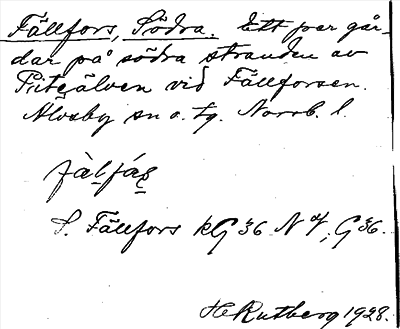 Fällfors, Södra. Ett par går-
dar på södra stranden av
Piteälven vid Fällforsen.
Älvsby sn o. tg. Norrb. l.
S. Fällfors kG 36 N
G 36.
H Rutberg 1928.